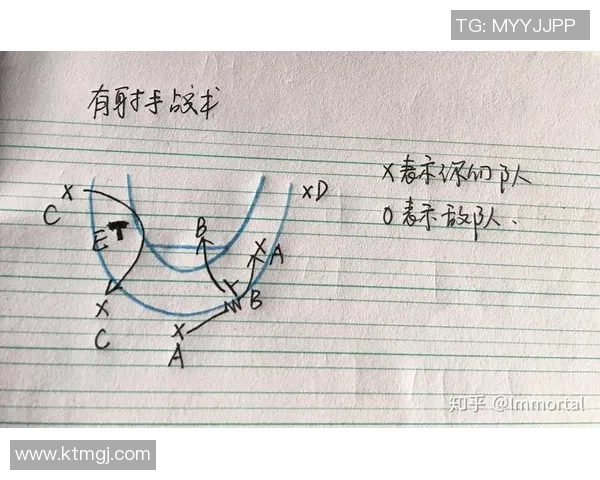 TG: MYYJJPP
有射手战术
X表示你的队
O表示敌队.
X
C
E
T
X
C
B
X
A
X
A
B
XD
知乎 @Immortal
www.ktmgj.com